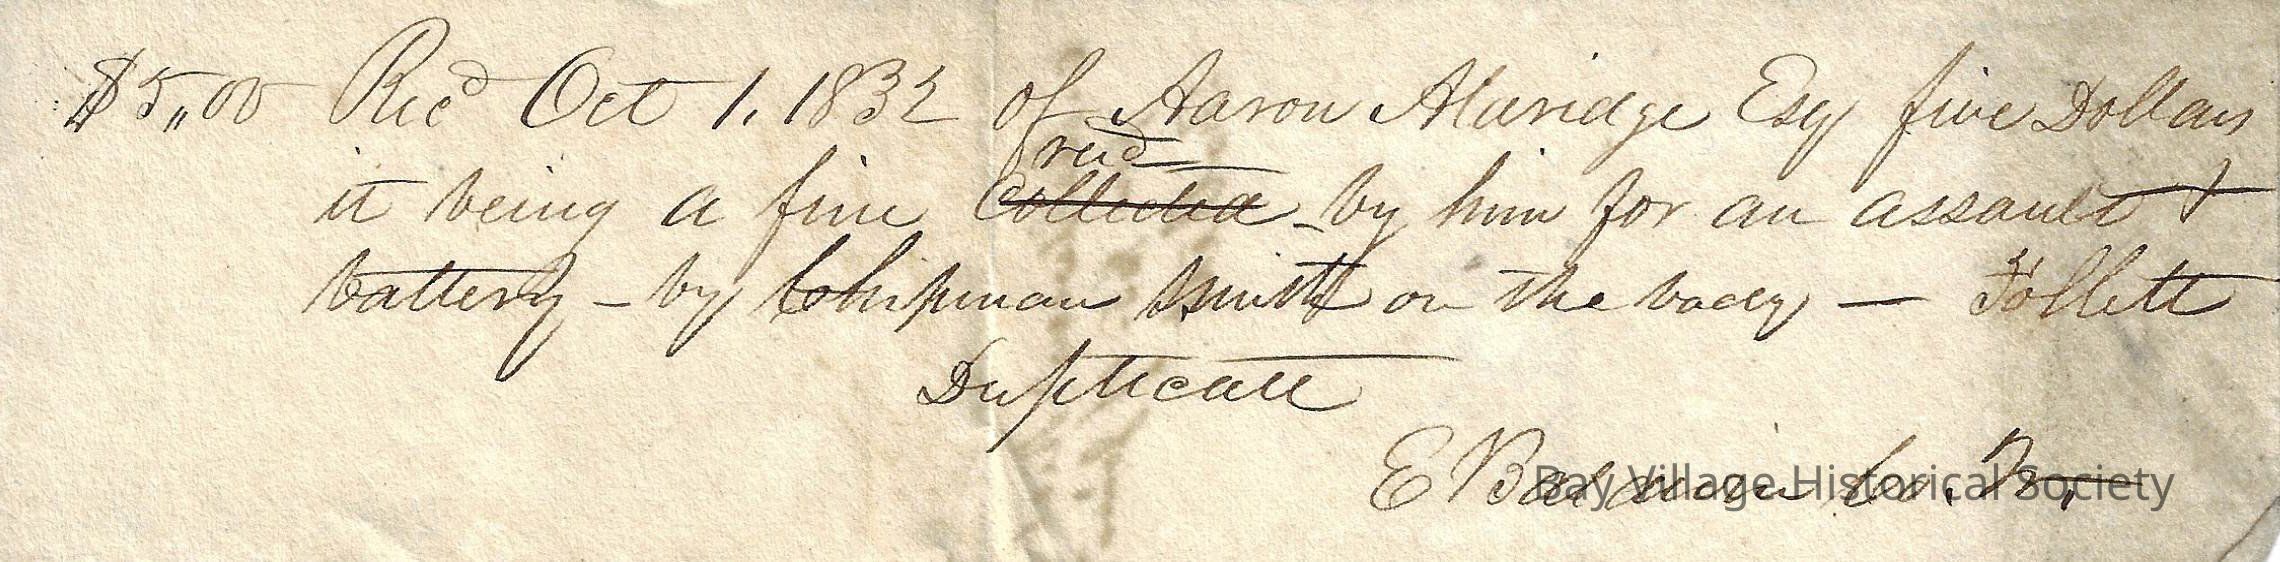 $5,,00 Recd Oct 1. 1832 of Aaron Alaridge Esq five Dollars
recd
it being a fine Collected by him for an assault &
battery - by Chipman Smith on the body — Follett
Duplicate
E Baldwin Co. Tr.
Bay Village Historical Society